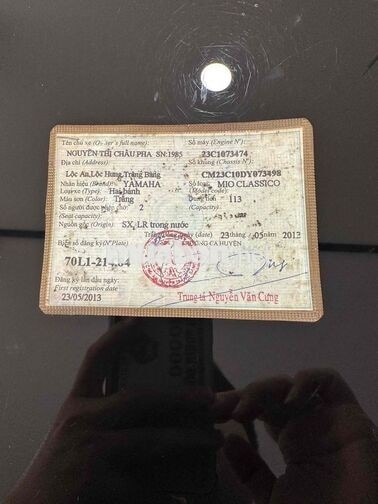 Tên chủ xe (Owner's full name):
Số máy (Engine Nº)
NGUYỄN THỊ CHÂU PHA SN:1985
23C1073474
Địa chỉ (Address):
Số khung (Chassis Nº)
Lộc An, Lộc Hưng, Trảng Bàng
CM23C10DY073498
Nhãn hiệu (Brand):
YAMAHA
Số loại
MIO CLASSICO
Loại xe (Type): Hai bánh
Màu sơn (Color): Trắng
Dung tích 113
Số người được phép chở 2
(Seat capacity)
(Capacity)
Nguồn gốc (Origin): SX, LR trong nước
ngày (date) 23 tháng 05 năm 2013
Biển số đăng ký (Nº Plate)
TRƯỞNG CA HUYỆN
70L1-21
Đăng ký lần đầu ngày:
First registration date
23/05/2013
Trung tá Nguyễn Văn Cưng